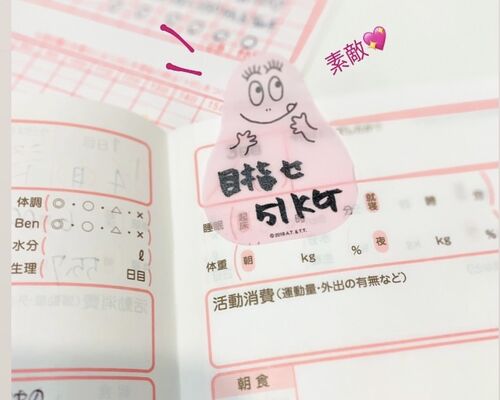 素敵💖
目指せ
51KG
©2018 A.T. & T.T.
1日目
体調 ◎・○・△・×
Ben ◎・○・△・×
水分 ℓ
生理 日目
睡眠 起床 時 分 就寝 時
体重 朝 kg % 夜 kg %
活動消費(運動量・外出の有無など)
朝食